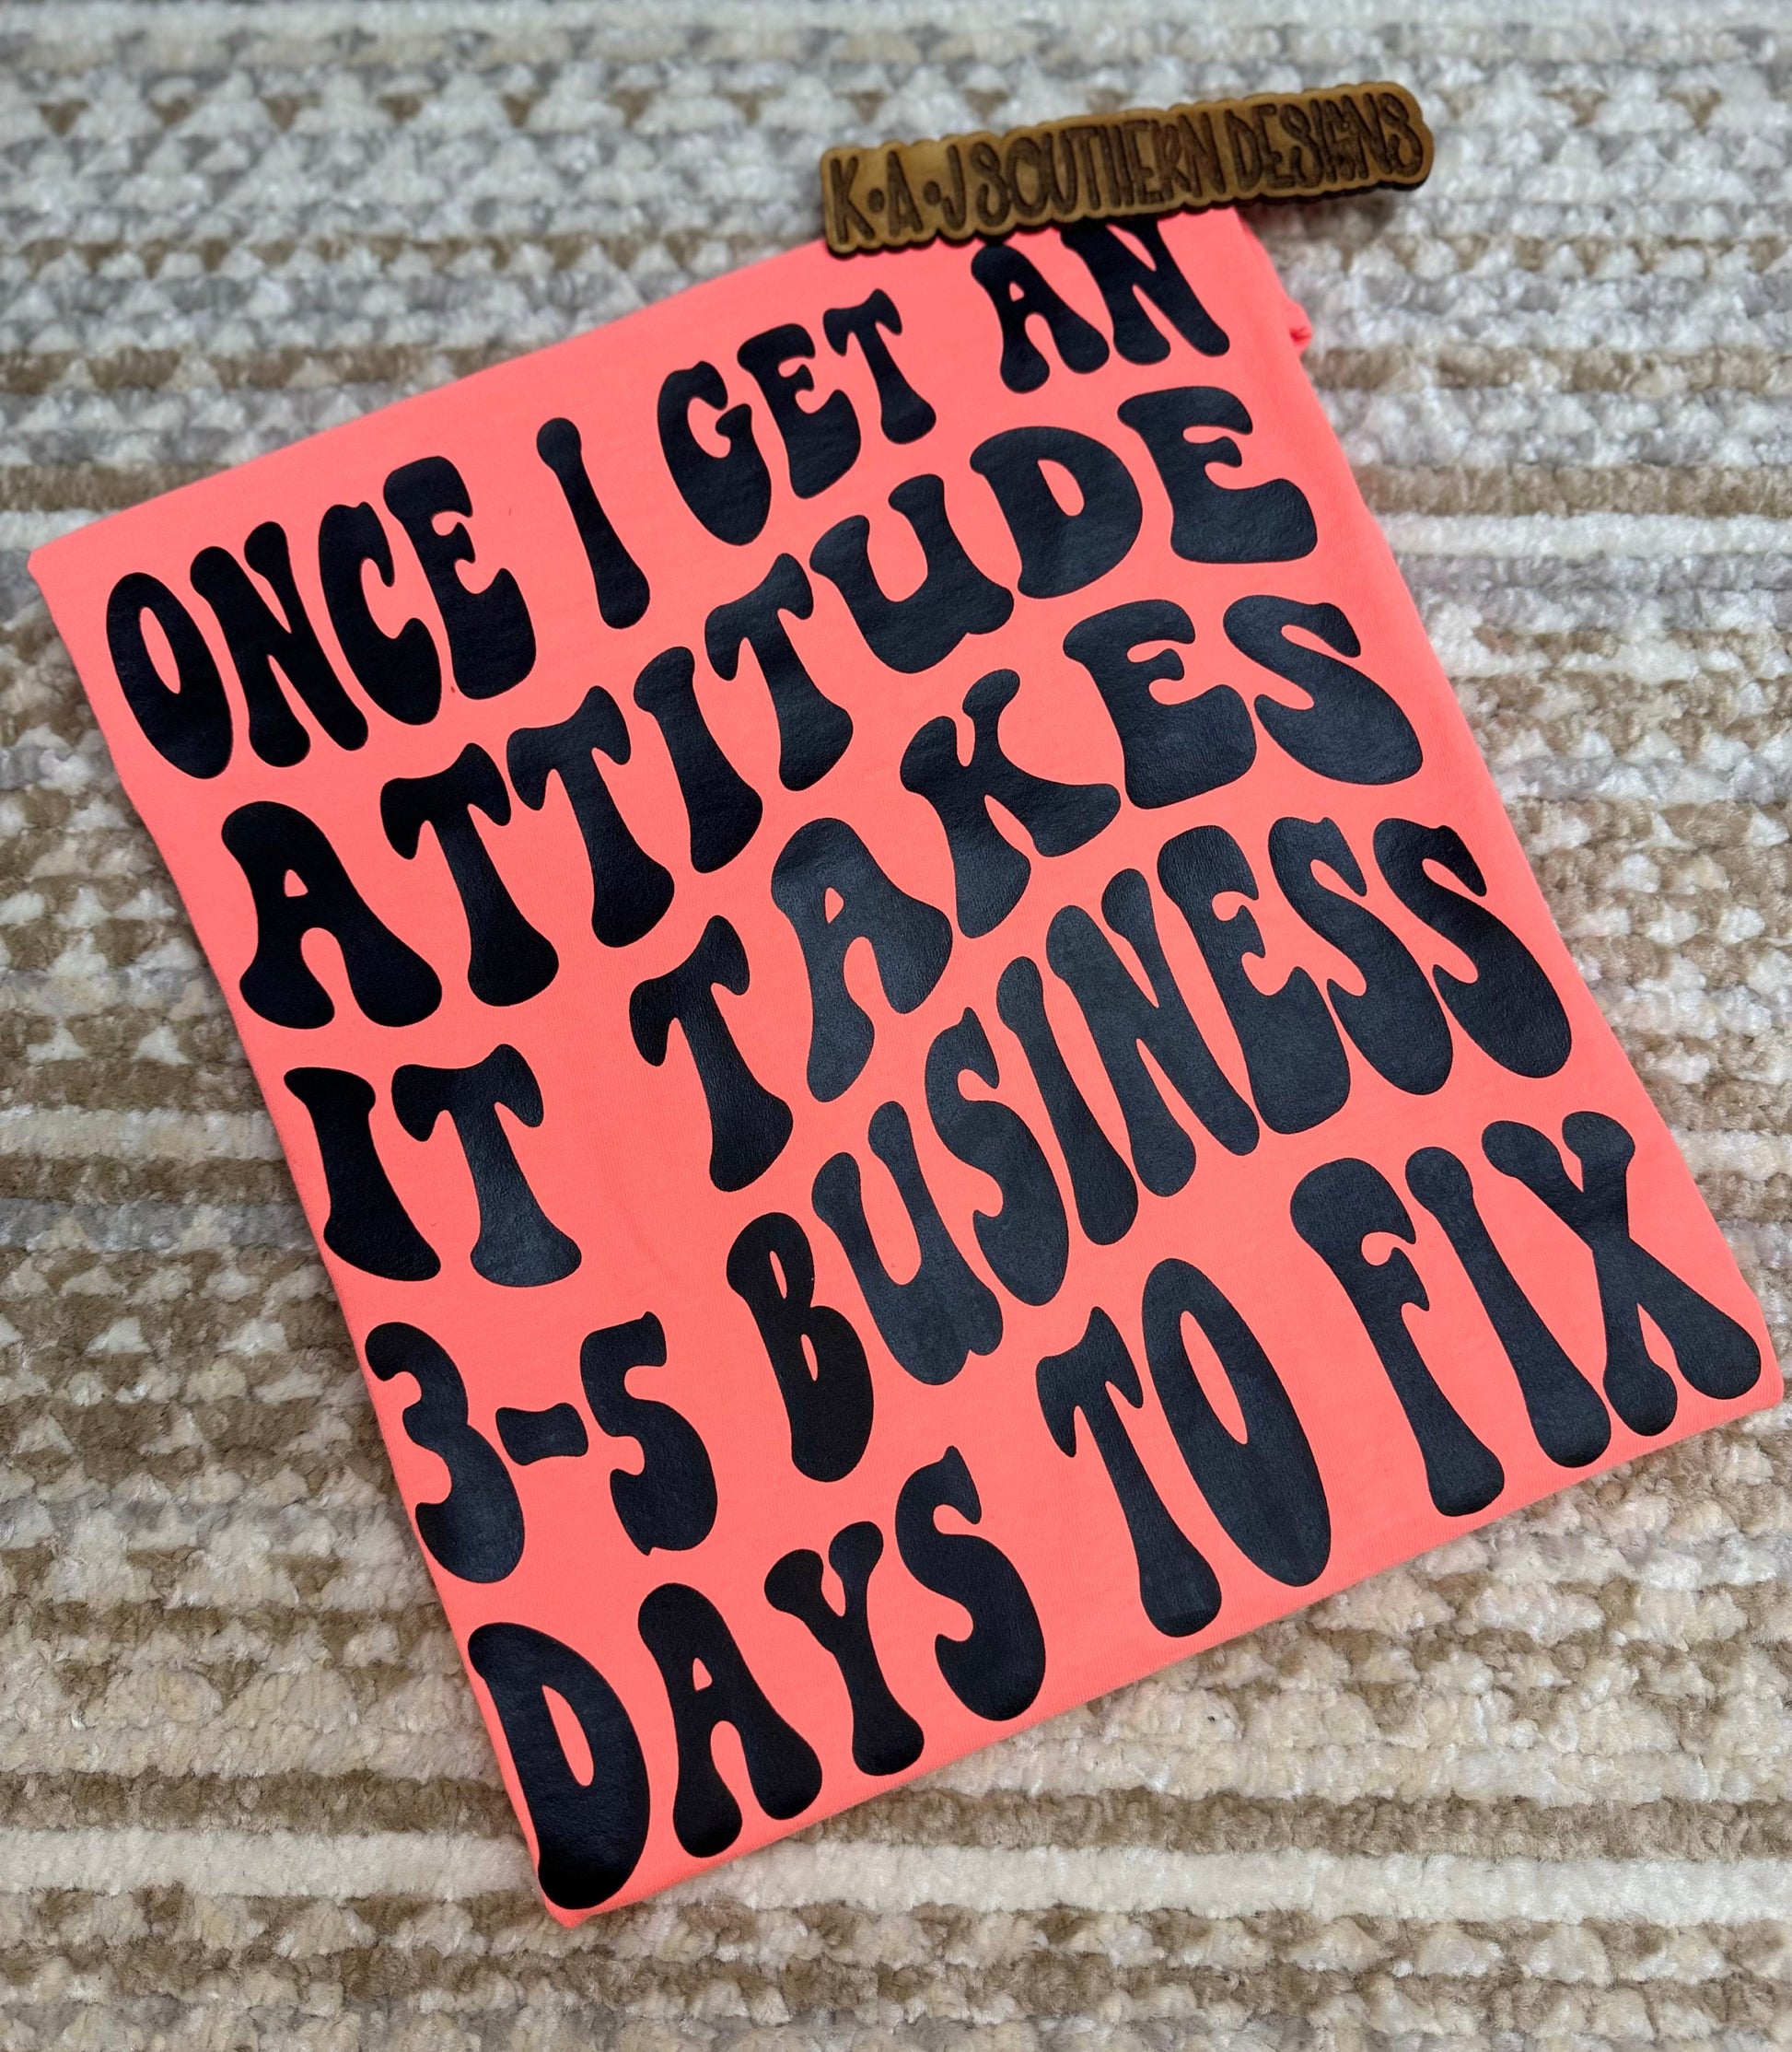 K•A•J SOUTHERN DESIGNS
ONCE I GET AN
ATTITUDE
IT TAKES
3-5 BUSINESS
DAYS TO FIX